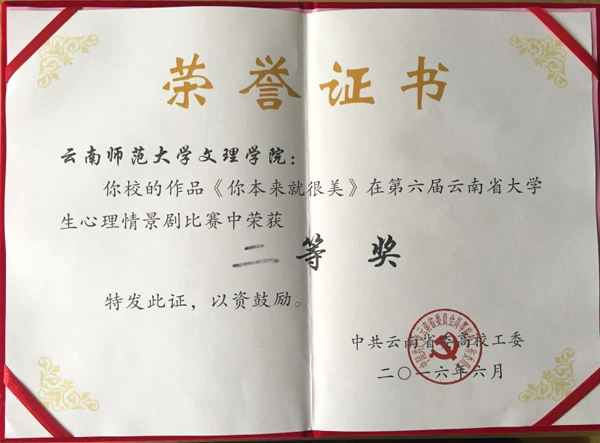 荣誉证书
云南师范大学文理学院：
你校的作品《你本来就很美》在第六届云南省大学
生心理情景剧比赛中荣获
二等奖
特发此证，以资鼓励。
中共云南省委高校工委
二〇一六年六月